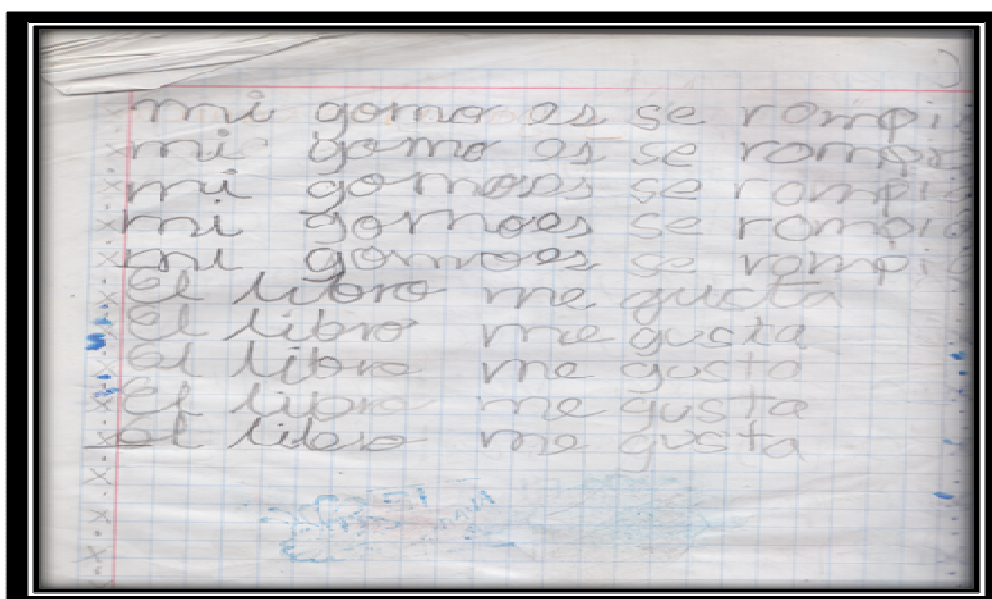 mi gomo os se rompió
mi gomo os se rompi
mi gomoos se rompió
mi gomoes se rompió
mi gomoes se rompió
El libro me gucta
El libro me gusta
el libro me gusta
El libro me gusta
el libro me gusta